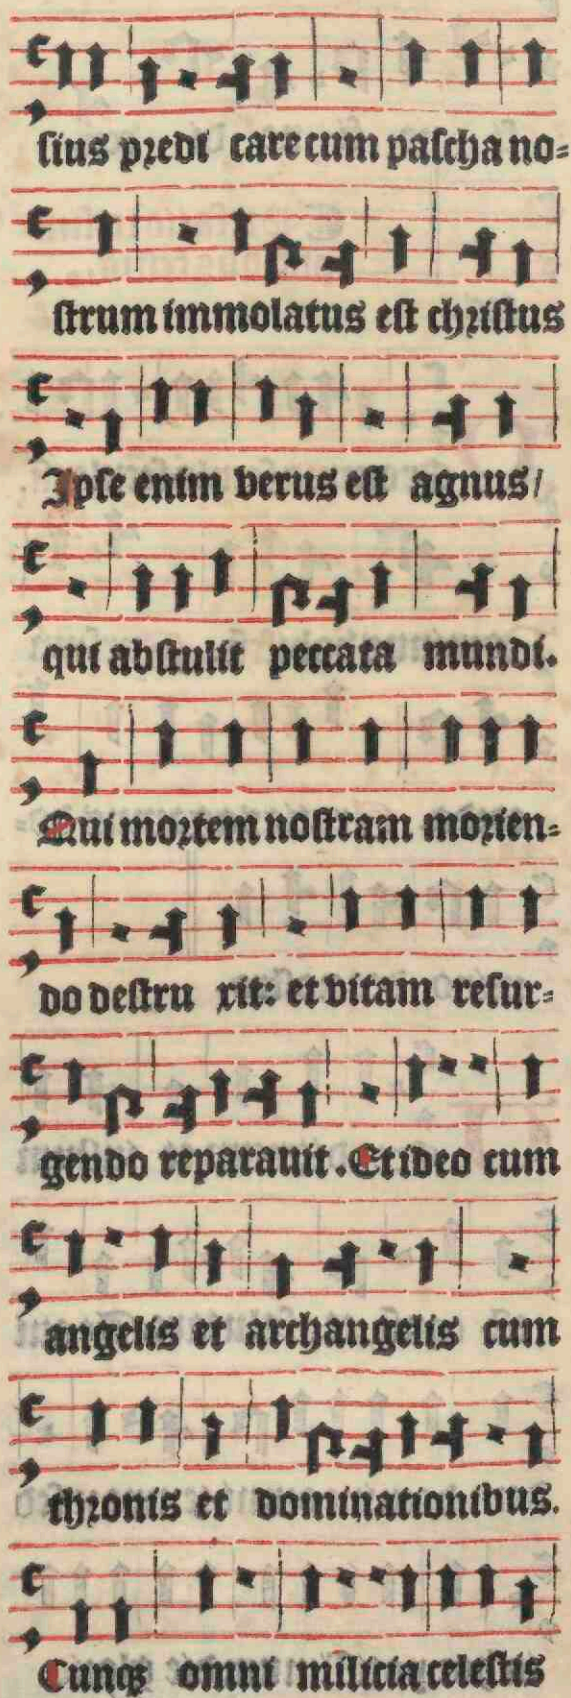 ſius predi care cum paſcha no=
ſtrum immolatus eſt chriſtus
Ipſe enim verus eſt agnus/
qui abſtulit peccata mundi.
Qui mortem noſtram morien=
do deſtru xit: et vitam reſur=
gendo reparauit. Et ideo cum
angelis et archangelis cum
thronis et dominationibus.
Cunqꝫ omni milicia celeſtis